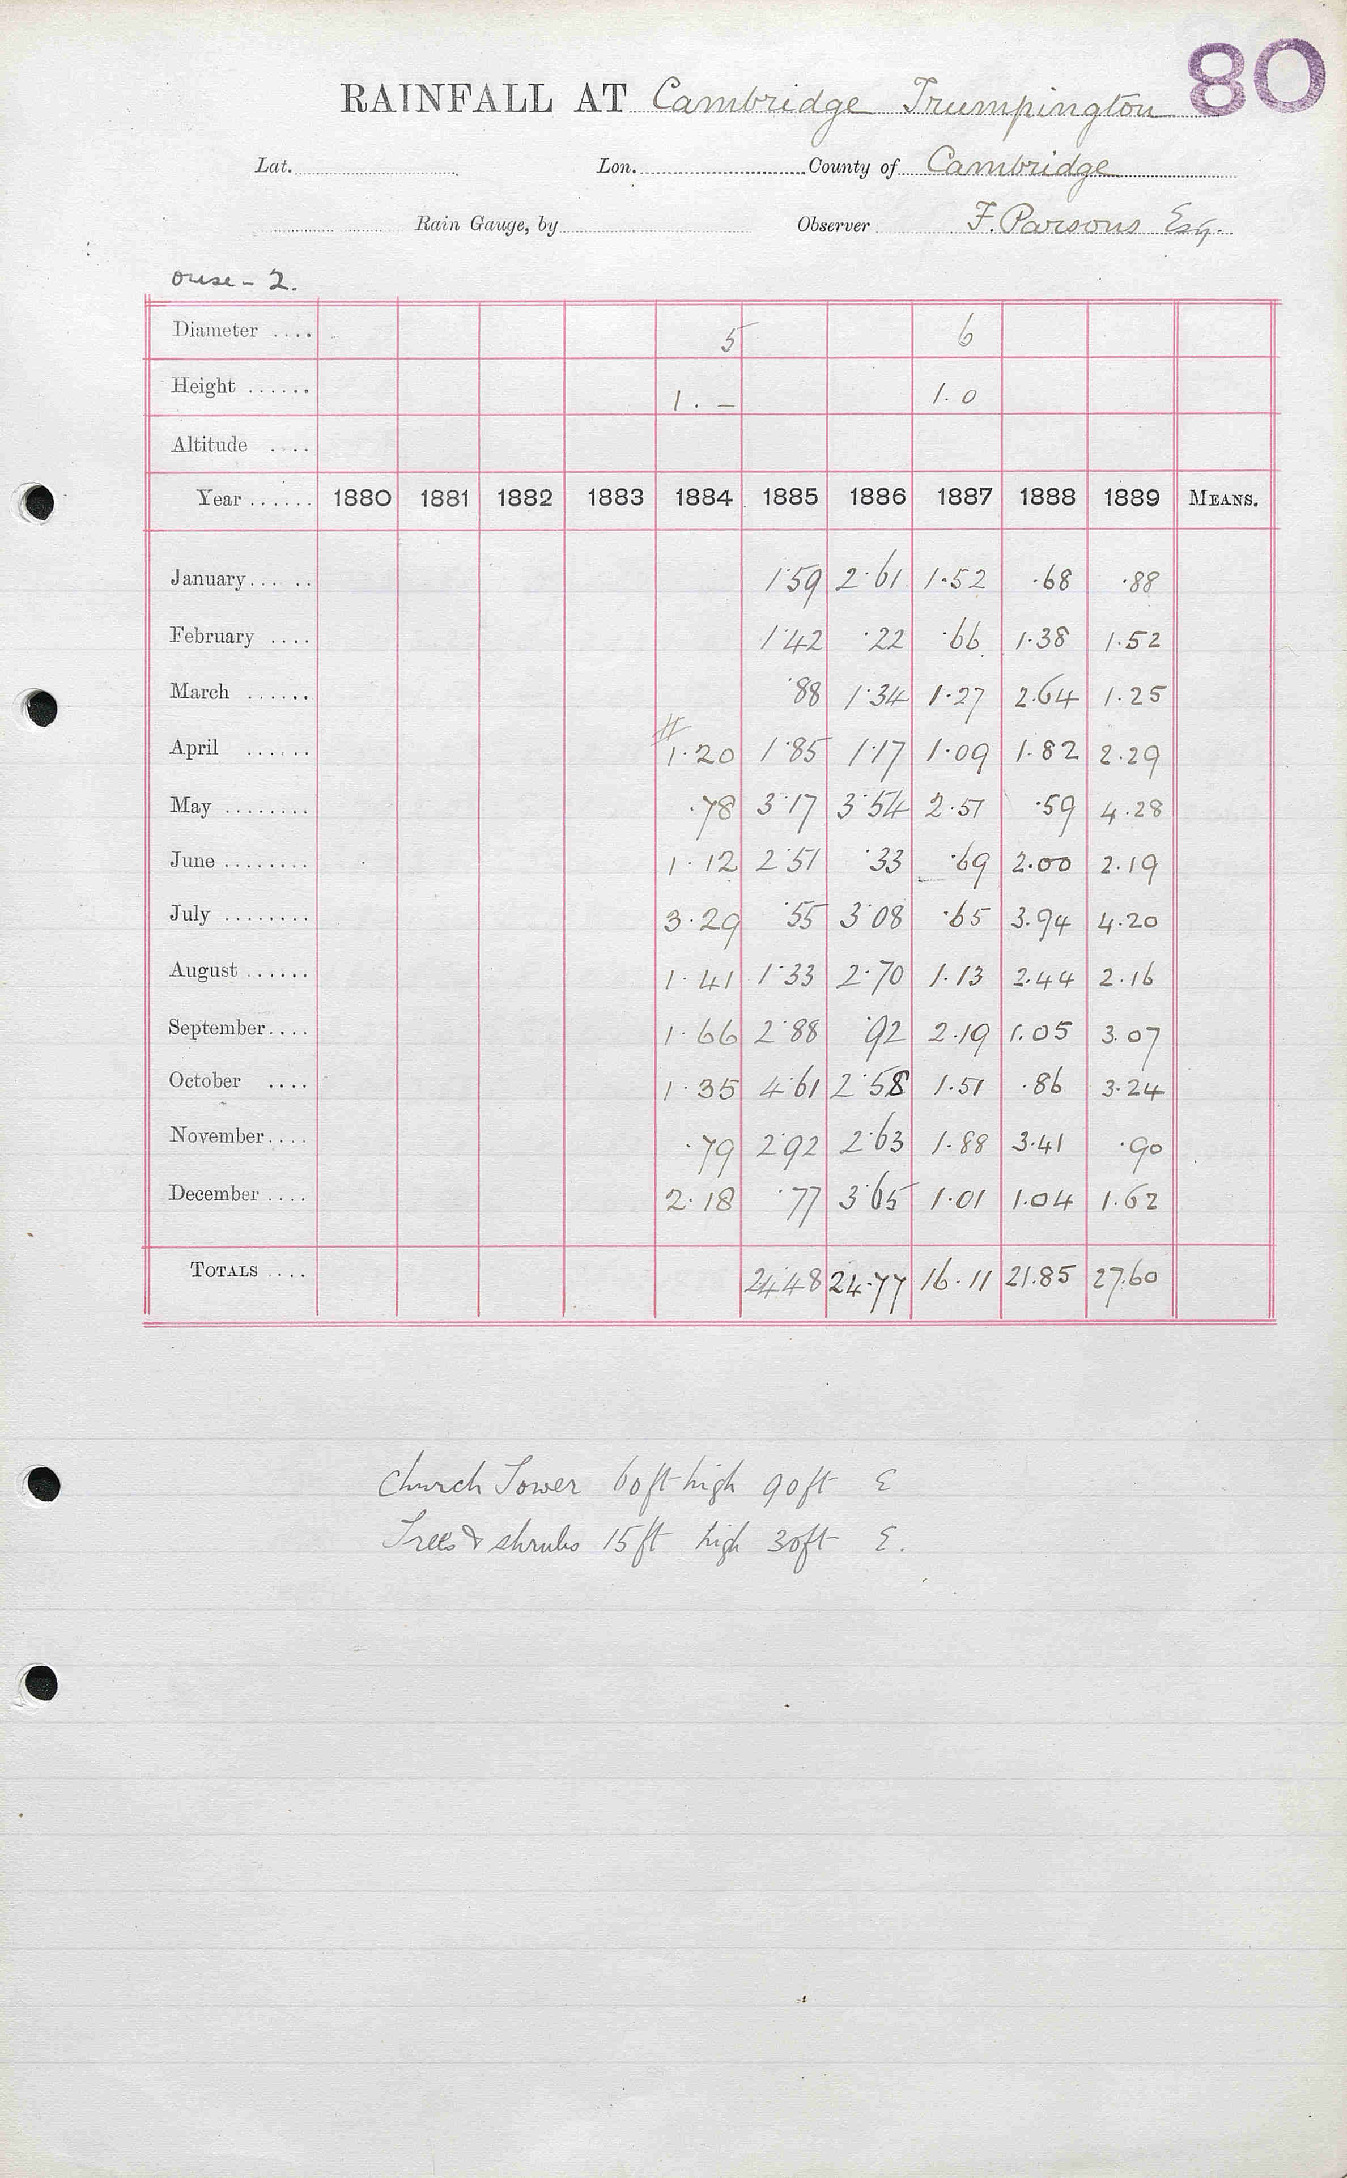 80
RAINFALL AT Cambridge Trumpington
Lat. Lon. County of Cambridge
Rain Gauge, by Observer F. Parsons Esq.
ouse - 2.
Diameter .... 5 6
Height ...... 1. — 1.0
Altitude ....
Year ...... 1880 1881 1882 1883 1884 1885 1886 1887 1888 1889 MEANS.
January... .. 1.59 2.61 1.52 .68 .88
February .... 1.42 .22 .66 1.38 1.52
March ...... .88 1.34 1.27 2.64 1.25
April ...... # 1.20 1.85 1.17 1.09 1.82 2.29
May ........ .78 3.17 3.54 2.51 .59 4.28
June ........ 1.12 2.51 .33 .69 2.00 2.19
July ........ 3.29 .55 3.08 .65 3.94 4.20
August ...... 1.41 1.33 2.70 1.13 2.44 2.16
September.... 1.66 2.88 .92 2.19 1.05 3.07
October .... 1.35 4.61 2.58 1.51 .86 3.24
November.... .79 2.92 2.63 1.88 3.41 .90
December .... 2.18 .77 3.65 1.01 1.04 1.62
TOTALS .... 24.48 24.77 16.11 21.85 27.60
Church Tower 60ft high 90ft E
Trees & shrubs 15ft high 30ft E.